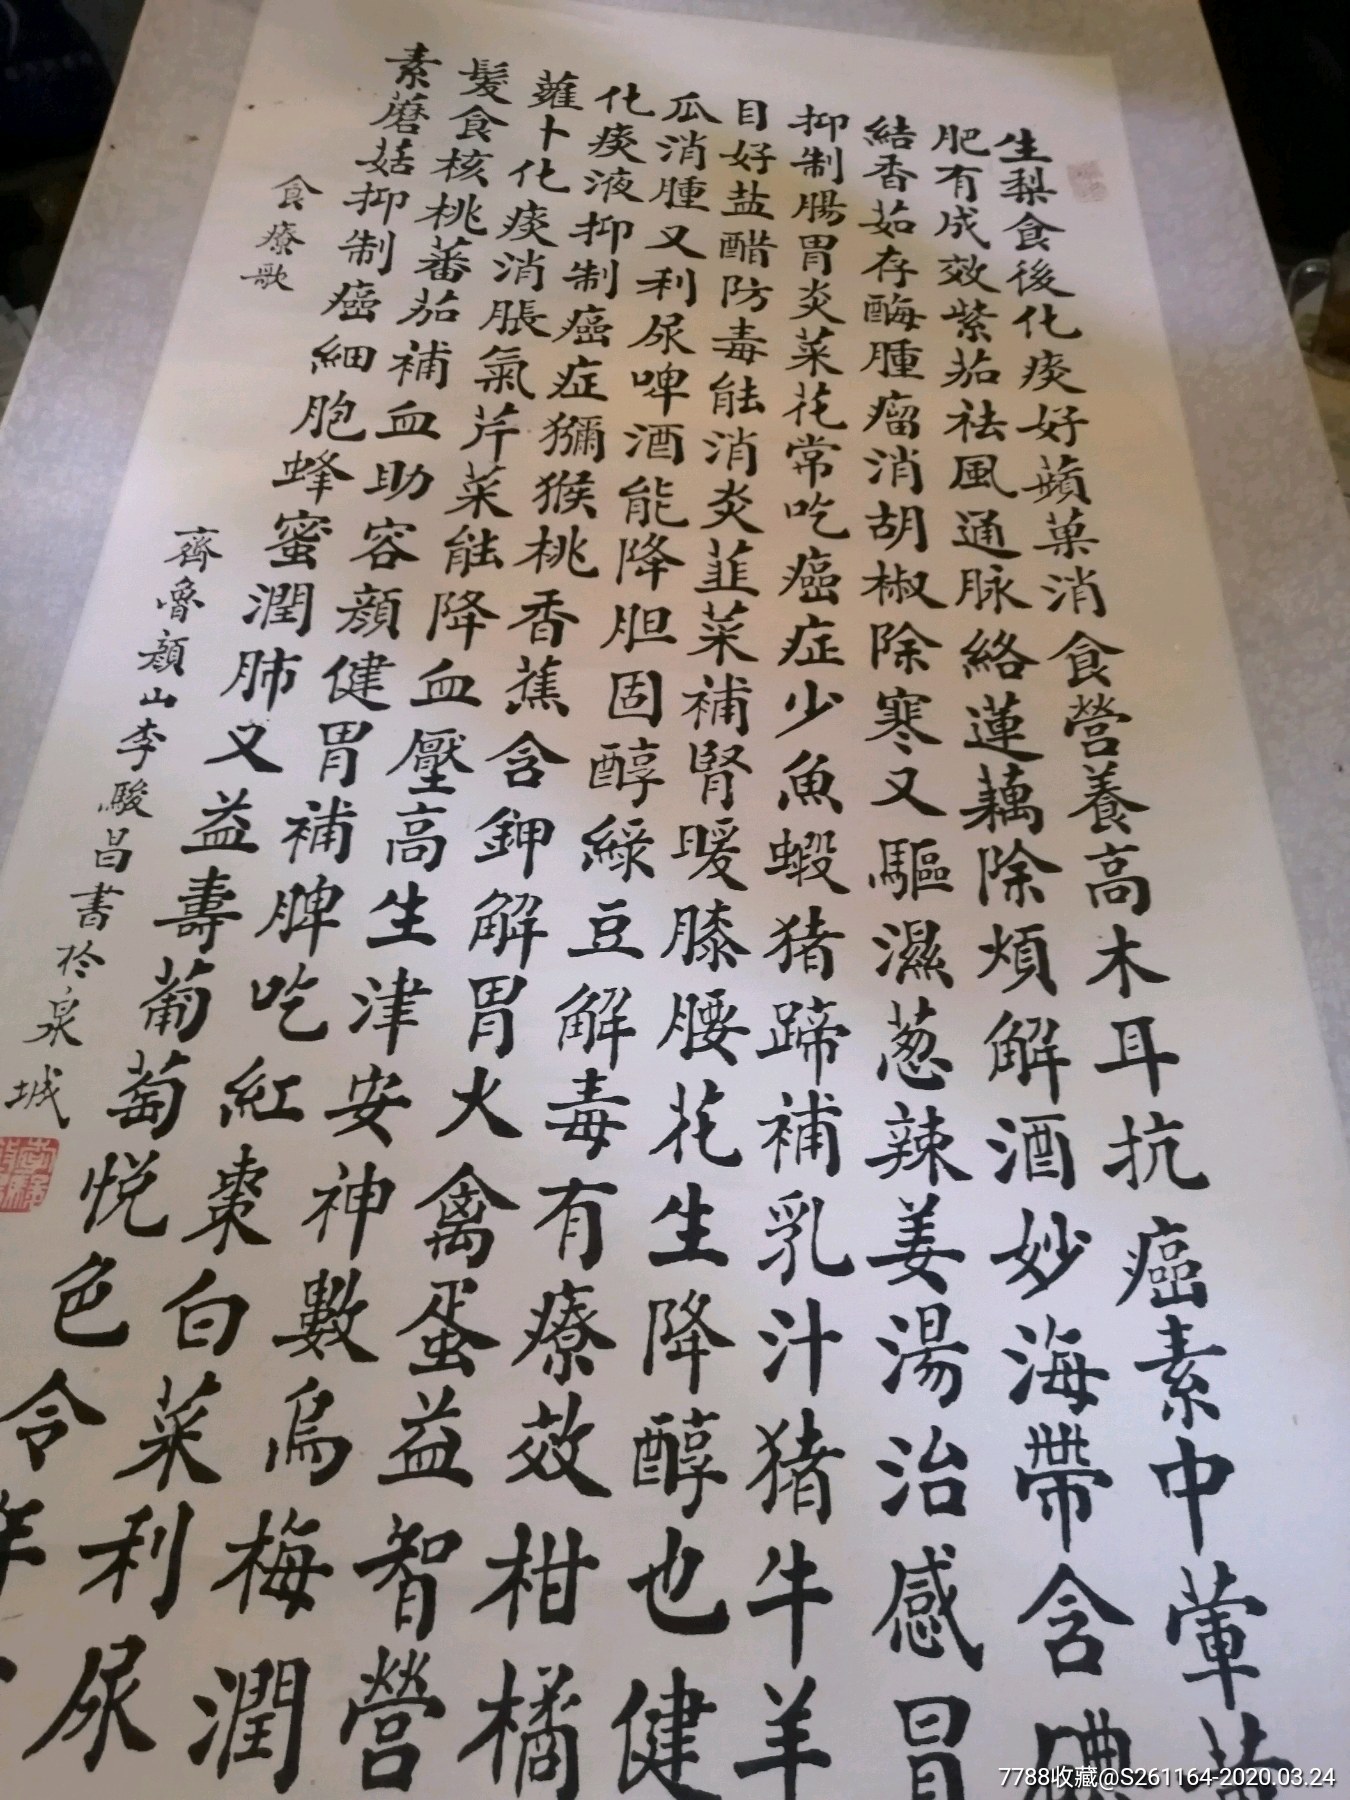 生梨食後化痰好蘋菓消食營養高木耳抗癌素中葷
肥有成效紫茄祛風通脉絡蓮藕除煩解酒妙海帶含碘
結香茹存酶腫瘤消胡椒除寒又驅濕葱辣姜湯治感冒
抑制腸胃炎菜花常吃癌症少魚蝦猪蹄補乳汁猪牛羊
目好盐醋防毒能消炎韮菜補腎暖膝腰花生降醇也健
瓜消腫又利尿啤酒能降胆固醇綠豆解毒有療效柑橘
化痰液抑制癌症獼猴桃香蕉含鉀解胃火禽蛋益智營
蘿卜化痰消脹氣芹菜能降血壓高生津安神數烏梅潤
髮食核桃蕃茄補血助容顏健胃補脾吃紅棗白菜利尿
素蘑菇抑制癌細胞蜂蜜潤肺又益壽葡萄悅色令年
食療歌
齊魯顏山李駿昌書於泉城
7788收藏@S261164-2020.03.24